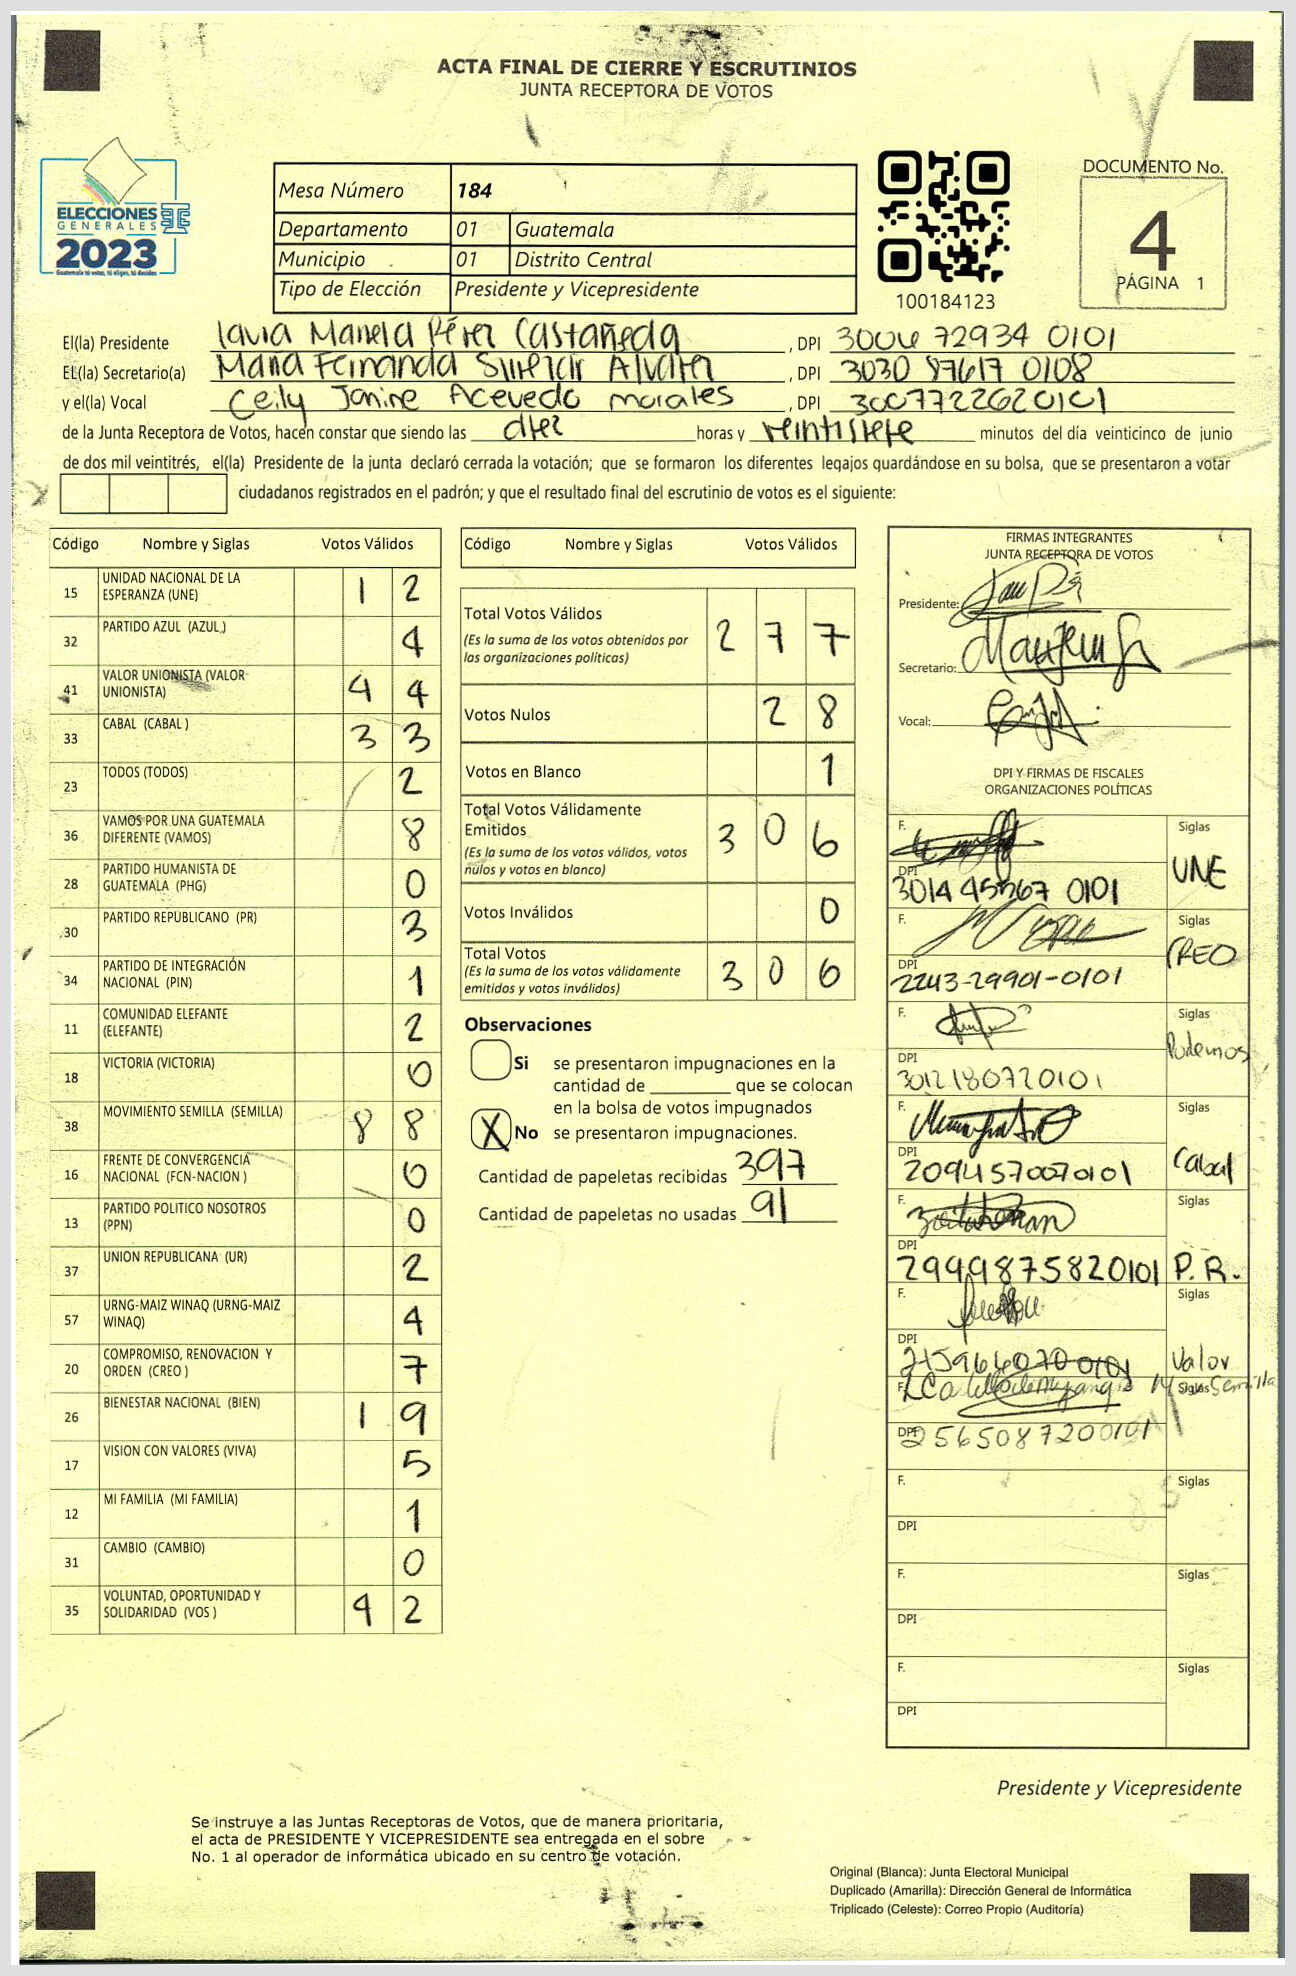 ACTA FINAL DE CIERRE Y ESCRUTINIOS
JUNTA RECEPTORA DE VOTOS
ELECCIONES
GENERALES
2023
Guatemala tú votas, tú eliges, tú decides
Mesa Número 184
Departamento 01 Guatemala
Municipio 01 Distrito Central
Tipo de Elección Presidente y Vicepresidente
100184123
DOCUMENTO No.
4
PÁGINA 1
El(la) Presidente Pérez Castañeda, DPI 3006 72934 0101
EL(la) Secretario(a) Maria Fernanda, DPI 3030 87617 0108
y el(la) Vocal Ceily Janine Acevedo morales, DPI 3007722620101
de la Junta Receptora de Votos, hacen constar que siendo las diez horas y veintisiete minutos del día veinticinco de junio
de dos mil veintitrés, el(la) Presidente de la junta declaró cerrada la votación; que se formaron los diferentes legajos quardándose en su bolsa, que se presentaron a votar
ciudadanos registrados en el padrón; y que el resultado final del escrutinio de votos es el siguiente:
Código Nombre y Siglas Votos Válidos
15 UNIDAD NACIONAL DE LA ESPERANZA (UNE) 1 2
32 PARTIDO AZUL (AZUL) 4
41 VALOR UNIONISTA (VALOR UNIONISTA) 4 4
33 CABAL (CABAL ) 3 3
23 TODOS (TODOS) 2
36 VAMOS POR UNA GUATEMALA DIFERENTE (VAMOS) 8
28 PARTIDO HUMANISTA DE GUATEMALA (PHG) 0
30 PARTIDO REPUBLICANO (PR) 3
34 PARTIDO DE INTEGRACIÓN NACIONAL (PIN) 1
11 COMUNIDAD ELEFANTE (ELEFANTE) 2
18 VICTORIA (VICTORIA) 0
38 MOVIMIENTO SEMILLA (SEMILLA) 8 8
16 FRENTE DE CONVERGENCIA NACIONAL (FCN-NACION ) 0
13 PARTIDO POLITICO NOSOTROS (PPN) 0
37 UNION REPUBLICANA (UR) 2
57 URNG-MAIZ WINAQ (URNG-MAIZ WINAQ) 4
20 COMPROMISO, RENOVACION Y ORDEN (CREO ) 7
26 BIENESTAR NACIONAL (BIEN) 1 9
17 VISION CON VALORES (VIVA) 5
12 MI FAMILIA (MI FAMILIA) 1
31 CAMBIO (CAMBIO) 0
35 VOLUNTAD, OPORTUNIDAD Y SOLIDARIDAD (VOS ) 4 2
Código Nombre y Siglas Votos Válidos
Total Votos Válidos 2 7 7
(Es la suma de los votos obtenidos por
las organizaciones politicas)
Votos Nulos 2 8
Votos en Blanco 1
Total Votos Válidamente
Emitidos 3 0 6
(Es la suma de los votos válidos, votos
nulos y votos en blanco)
Votos Inválidos 0
Total Votos 3 0 6
(Es la suma de los votos válidamente
emitidos y votos inválidos)
Observaciones
Si se presentaron impugnaciones en la
cantidad de ________ que se colocan
en la bolsa de votos impugnados
X No se presentaron impugnaciones.
Cantidad de papeletas recibidas 397
Cantidad de papeletas no usadas 91
FIRMAS INTEGRANTES
JUNTA RECEPTORA DE VOTOS
Presidente:
Secretario:
Vocal:
DPI Y FIRMAS DE FISCALES
ORGANIZACIONES POLÍTICAS
F. Siglas UNE
DPI 3014 45567 0101
F. Siglas CREO
DPI 2243-29901-0101
F. Siglas Podemos
DPI 3012180720101
F. Siglas Cabal
DPI 2094570070101
F. Siglas P.R.
DPI 2999875820101
F. Siglas Valor
DPI
F. Siglas Mov Semilla
DPI 2565087200101
F. Siglas
DPI
F. Siglas
DPI
F. Siglas
DPI
Presidente y Vicepresidente
Se instruye a las Juntas Receptoras de Votos, que de manera prioritaria,
el acta de PRESIDENTE Y VICEPRESIDENTE sea entregada en el sobre
No. 1 al operador de informática ubicado en su centro de votación.
Original (Blanca): Junta Electoral Municipal
Duplicado (Amarilla): Dirección General de Informática
Triplicado (Celeste): Correo Propio (Auditoría)